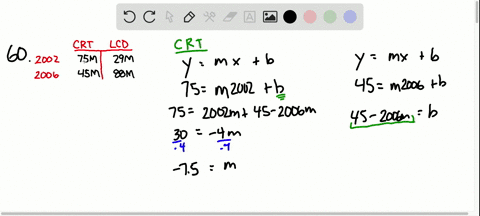 60.
CRT LCD
2002 75M 29M
2006 45M 88M
CRT
y = mx + b
75 = m2002 + b
75 = 2002m + 45 - 2006m
30 = -4m
-4 -4
-7.5 = m
y = mx + b
45 = m2006 + b
45 - 2006m = b